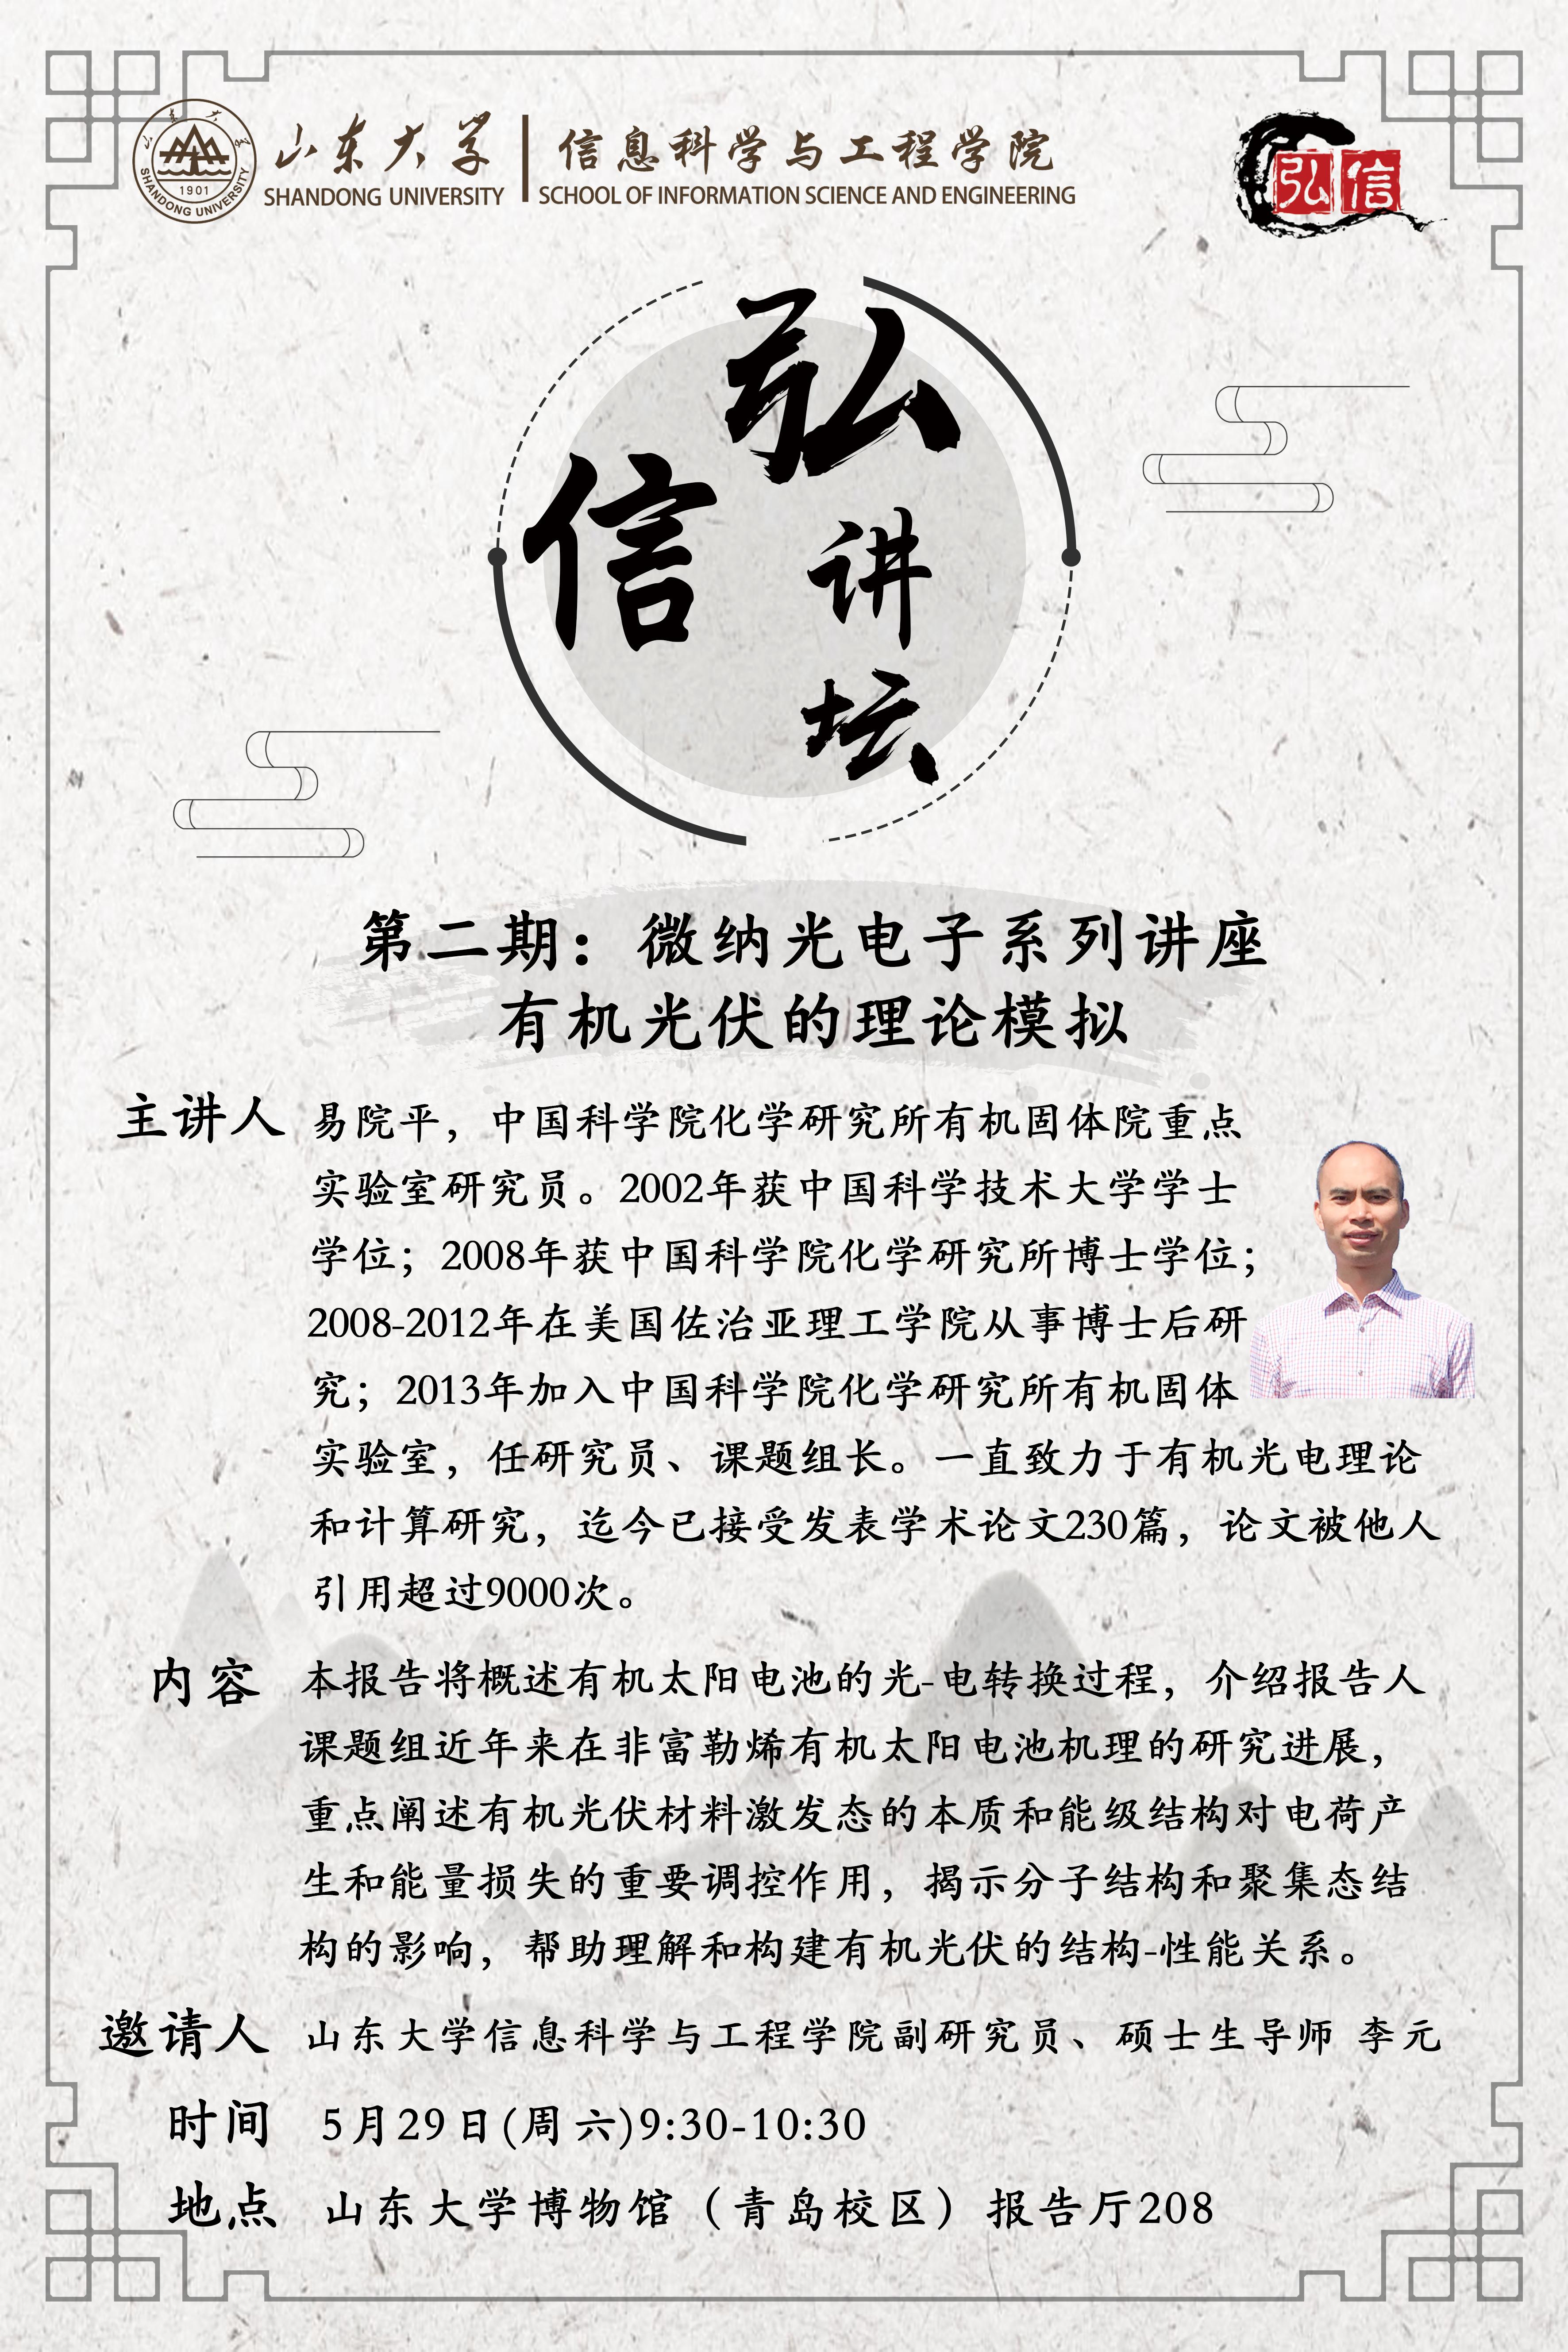 山东大学
SHANDONG UNIVERSITY
1901
山东大学
SHANDONG UNIVERSITY
信息科学与工程学院
SCHOOL OF INFORMATION SCIENCE AND ENGINEERING
弘信
弘信
讲坛
第二期：微纳光电子系列讲座
有机光伏的理论模拟
主讲人 易院平，中国科学院化学研究所有机固体院重点
实验室研究员。2002年获中国科学技术大学学士
学位；2008年获中国科学院化学研究所博士学位；
2008-2012年在美国佐治亚理工学院从事博士后研
究；2013年加入中国科学院化学研究所有机固体
实验室，任研究员、课题组长。一直致力于有机光电理论
和计算研究，迄今已接受发表学术论文230篇，论文被他人
引用超过9000次。
内容 本报告将概述有机太阳电池的光-电转换过程，介绍报告人
课题组近年来在非富勒烯有机太阳电池机理的研究进展，
重点阐述有机光伏材料激发态的本质和能级结构对电荷产
生和能量损失的重要调控作用，揭示分子结构和聚集态结
构的影响，帮助理解和构建有机光伏的结构-性能关系。
邀请人 山东大学信息科学与工程学院副研究员、硕士生导师 李元
时间 5月29日(周六)9:30-10:30
地点 山东大学博物馆（青岛校区）报告厅208